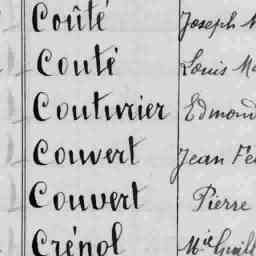 Coûté Joseph
Couté Louis
Couturier Edmond
Couvert Jean
Couvert Pierre
Crépol Mie